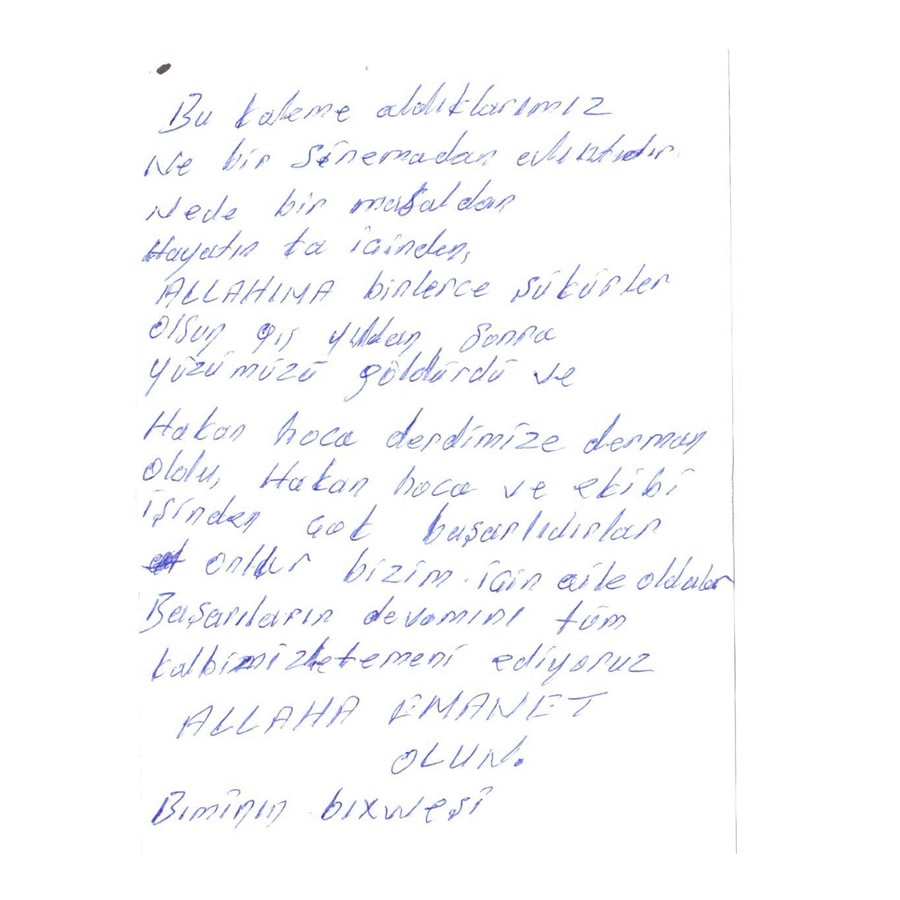 Bu kaleme aldıklarımız
Ne bir sinemadan alıntıdır.
Nede bir masaldan
Hayatın ta içinden,
ALLAHIMA binlerce şükürler
olsun yıldan sonra
yüzümüzü göldürdü ve
Hakan hoca derdimize derman
oldu, Hakan hoca ve ekibi
işinden çok başarlıdırlar
onlar bizim için aile oldalar
Başarıların devamını tüm
kalbimizle temeni ediyoruz
ALLAHA EMANET
OLUN.
Bımînın bıxweşî